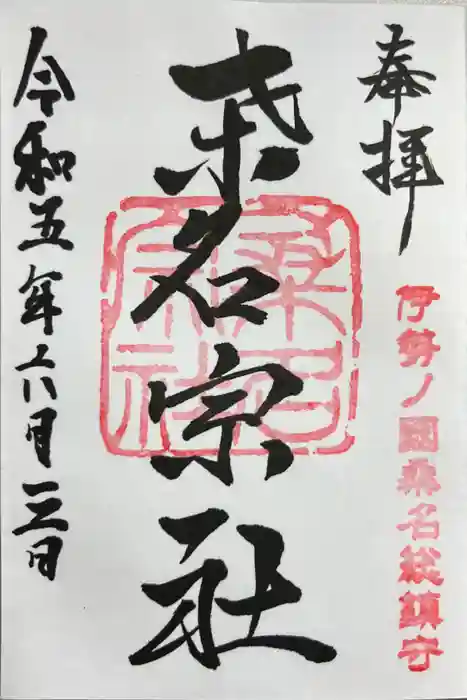 奉拝
伊勢ノ國桑名総鎮守
桑名宗社
桑名
宗社
令和五年六月三日